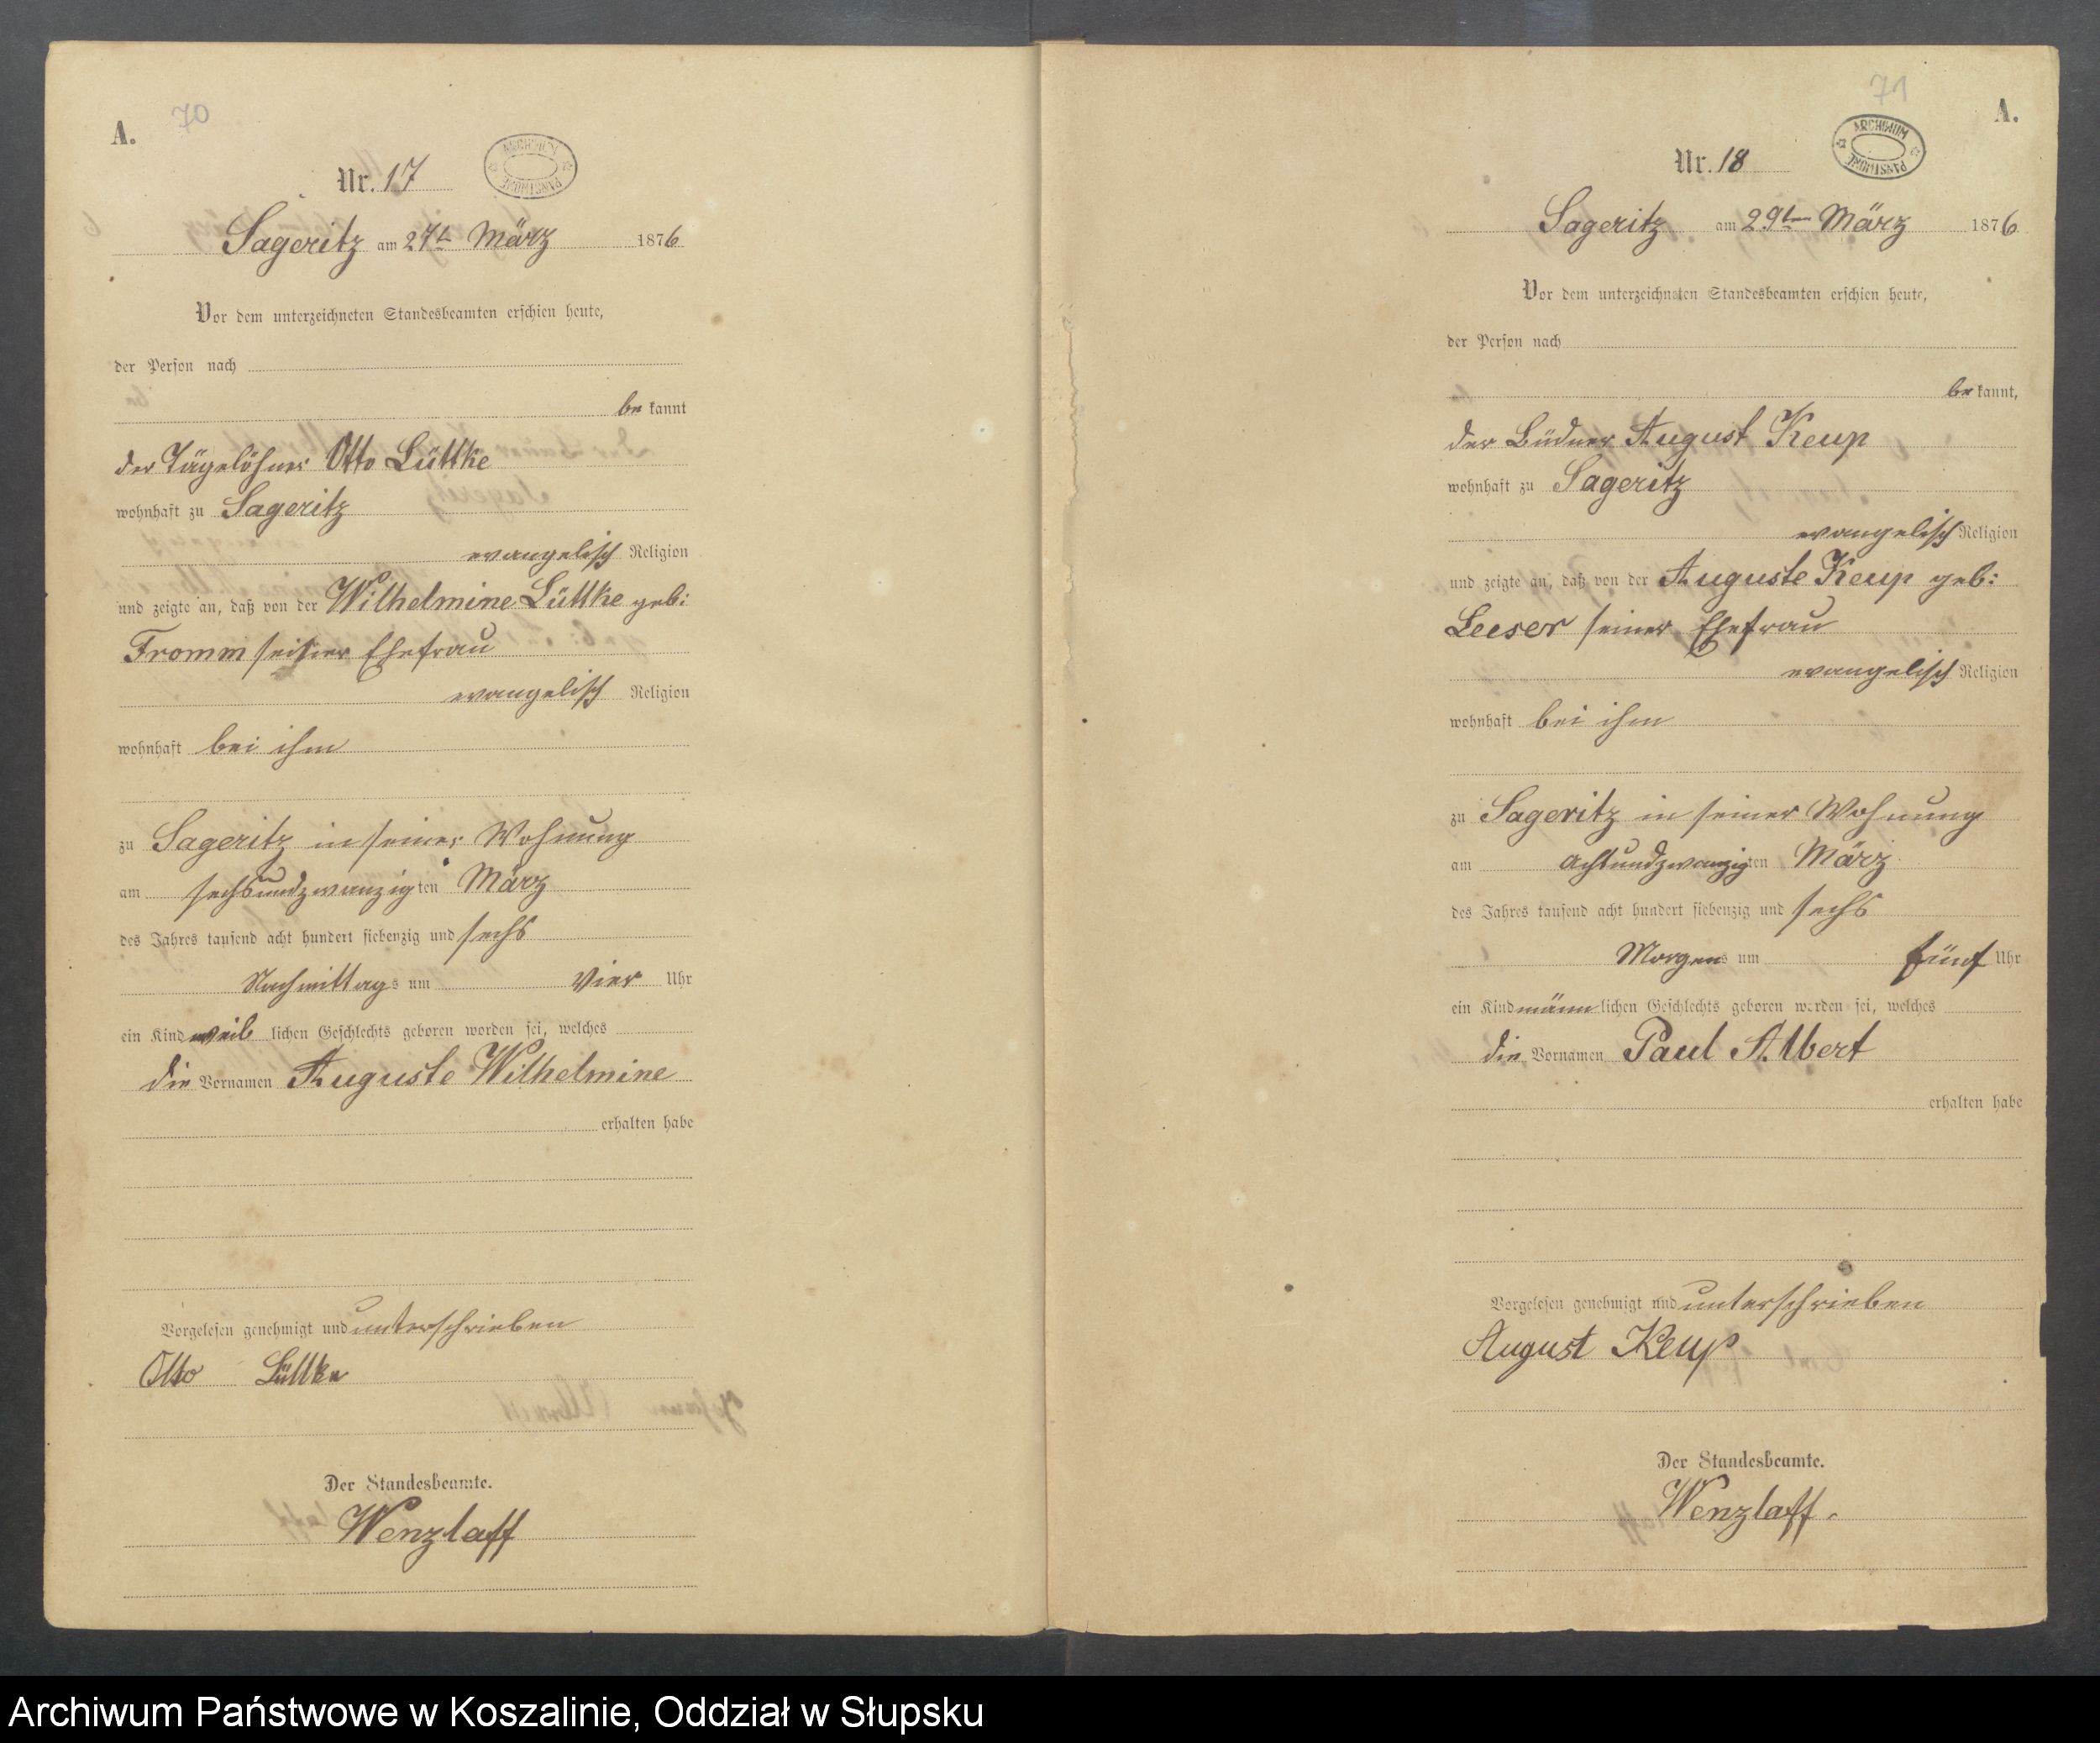 70
A.
Nr. 17
ARCHIWUM PAŃSTWOWE
Sageritz am 27t März 1876
Vor dem unterzeichneten Standesbeamten erschien heute,
der Person nach
be kannt
der Tägelöhner Otto Lüttke
wohnhaft zu Sageritz
evangelisch Religion
und zeigte an, daß von der Wilhelmine Lüttke geb:
Fromm seiner Ehefrau
evangelisch Religion
wohnhaft bei ihm
zu Sageritz in seiner Wohnung
am sechsundzwanzig ten März
des Jahres tausend acht hundert siebenzig und sechs
Nachmittags um vier Uhr
ein Kind weib lichen Geschlechts geboren worden sei, welches
die Vornamen Auguste Wilhelmine
erhalten habe
Vorgelesen genehmigt und unterschrieben
Otto Lüttke
Der Standesbeamte.
Wenzlaff
71
A.
Nr. 18
ARCHIWUM PAŃSTWOWE
Sageritz am 29ten März 1876
Vor dem unterzeichneten Standesbeamten erschien heute,
der Person nach
be kannt,
der Büdner August Keup
wohnhaft zu Sageritz
evangelisch Religion
und zeigte an, daß von der Auguste Keup geb:
Leeser seiner Ehefrau
evangelisch Religion
wohnhaft bei ihm
zu Sageritz in seiner Wohnung
am achtundzwanzig ten März
des Jahres tausend acht hundert siebenzig und sechs
Morgens um fünf Uhr
ein Kind männ lichen Geschlechts geboren worden sei, welches
die Vornamen Paul Albert
erhalten habe
Vorgelesen genehmigt und unterschrieben
August Keup
Der Standesbeamte.
Wenzlaff.
Archiwum Państwowe w Koszalinie, Oddział w Słupsku